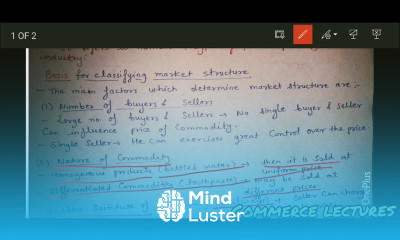 1 OF 2
industry:
Basis for classifying market structure
- The main factors which determine market structure are :-
(1) Number of buyers & Sellers
- Large no. of buyers & Sellers → No single buyer & seller
Can influence price of Commodity.
- Single Seller → He Can exercises great Control over the price.
(2) Nature of Commodity
- Homogenous products (bottled water) → then it is sold at
uniform price
- Differentiated Commodity (toothpaste) → may be sold at
different prices
Seller Can charge
Mind
Luster
COMMERCE LECTURES
OnePlus